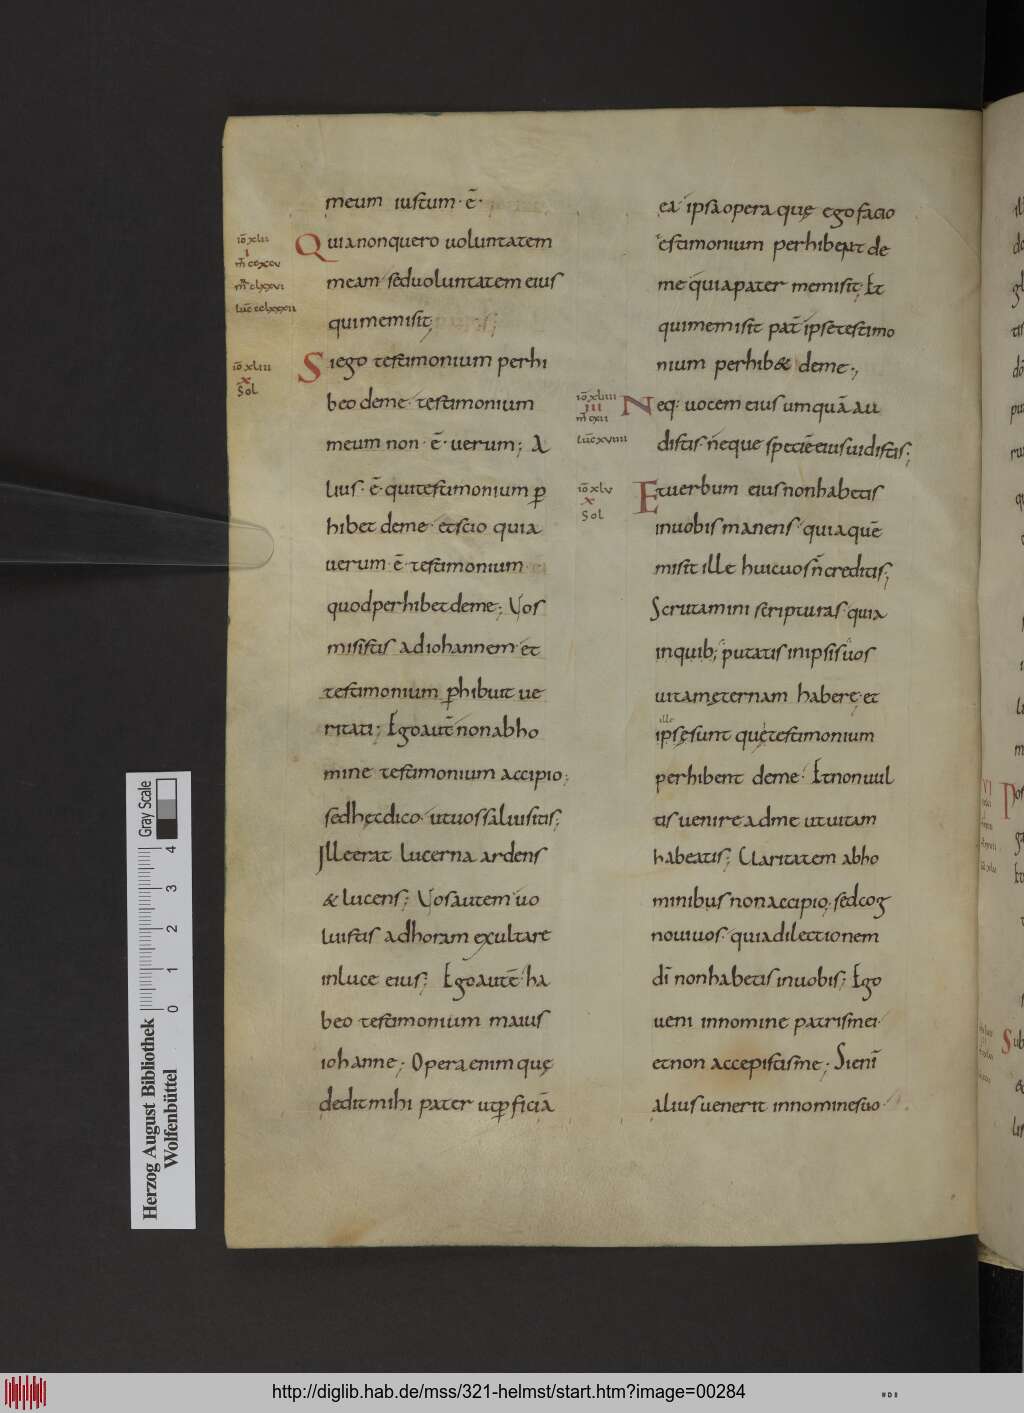 meum iustum· ē·
Quianonquero uoluntatem
meam seduoluntatem eius
quimemisit;
Siego testimonium perhi
beo deme· testimonium
meum non· ē· uerum; A
lius· ē· quitestimonium p̲
hibet deme· etscio quia
uerum· ē· testimonium
quodperhibetdeme; Uos
misistis adiohannem· et
testimonium p̲hibuit ue
ritati; Egoaut̄ nonabho
mine testimonium accipio;
sedhęcdico· utuossaluisitis;
Illeerat lucerna ardens
& lucens; Uosautem uo
luistis adhoram exultare
inluce eius; Egoautē ha
beo testimonium maius
iohanne; Opera enim quę
deditmihi pater utp̲ficiā
ea ipsaopera quę ego facio
testimonium perhibent de
me quiapater memisit; Et
quimemisit pat̄ ipsetestimo
nium perhib& deme;
iō xlii
i
m̄ ccxcv
m̄r clxxvi
luc̄ cclxxxii
iō xliii
x
Sol
Neq; uocem eius umquā au
distis· neque speciēeiusuidistis;
Etuerbum eiusnonhabetis
inuobis manens· quiaquē
misit ille huicuos n̄ creditis;
Scrutamini scripturas· quia
inquib; putatis inipsis uos
uitamęternam haberę· et
ille
ipsęsunt quętestimonium
perhibent deme· Etnonuul
tis uenire adme utuitam
habeatis; Claritatem abho
minibus nonaccipio; sedcog
nouiuos· quiadilectionem
dī nonhabetis inuobis; Ego
ueni innomine patrismei·
etnon accepistisme; Sienī
alius uenerit innominesuo·
iō xliiii
iii
m̄ cxii
luc̄ xviiii
iō xlv
x
Sol
Herzog August Bibliothek
Wolfenbüttel
0 1 2 3 4
Gray Scale
http://diglib.hab.de/mss/321-helmst/start.htm?image=00284